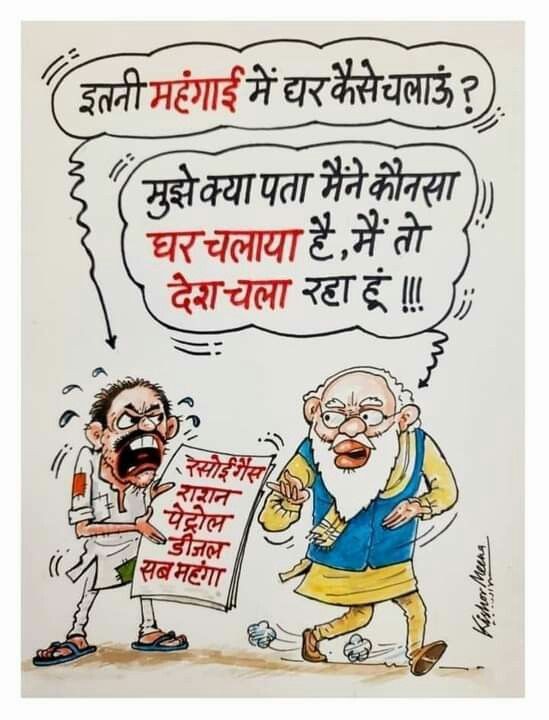 इतनी महंगाई में घर कैसे चलाऊं ?
मुझे क्या पता मैंने कौनसा
घर चलाया है, मैं तो
देश चला रहा हूं !!!
रसोई गैस
राशन
पेट्रोल
डीजल
सब महंगा
Kishor Meena